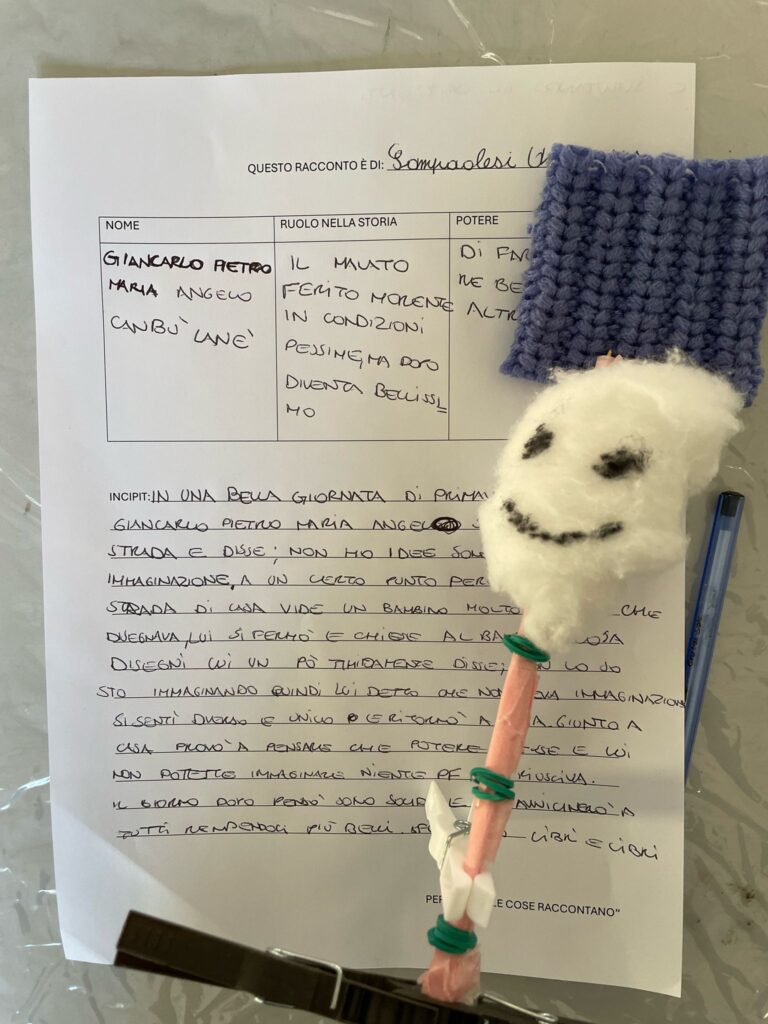 QUESTO RACCONTO È DI: Sompaolesi
NOME RUOLO NELLA STORIA POTERE
GIANCARLO PIETRO
MARIA ANGELO
CANBÙ LANÈ
IL MALATO
FERITO MORENTE
IN CONDIZIONI
PESSIME, MA DOPO
DIVENTA BELLISSI
MO
DI FAR
RE BE
ALTR
INCIPIT: IN UNA BELLA GIORNATA DI PRIMAV
GIANCARLO PIETRO MARIA ANGELO S
STRADA E DISSE; NON HO IDEE SON
IMMAGINAZIONE, A UN CERTO PUNTO PER
STRADA DI CASA VIDE UN BAMBINO MOLTO CHE
DISEGNAVA, LUI SI FERMÒ E CHIESE AL BA OSA
DISEGNI LUI UN PÒ TIMIDAMENTE DISSE; N LO SO
STO IMMAGINANDO QUINDI LUI DETTO CHE NON EVA IMMAGINAZIONE
SI SENTÌ DIVERSO E UNICO E RITORNÒ A A. GIUNTO A
CASA PROVÒ A PENSARE CHE POTERE ESSE E LUI
NON POTETTE IMMAGINARE NIENTE RIUSCIVA.
IL GIORNO DOPO PENSÒ SONO SOL E AVVICINERÒ A
TUTTI RENDENDOLI PIÙ BELLI. LIBRI E LIBRI
PER LE COSE RACCONTANO"